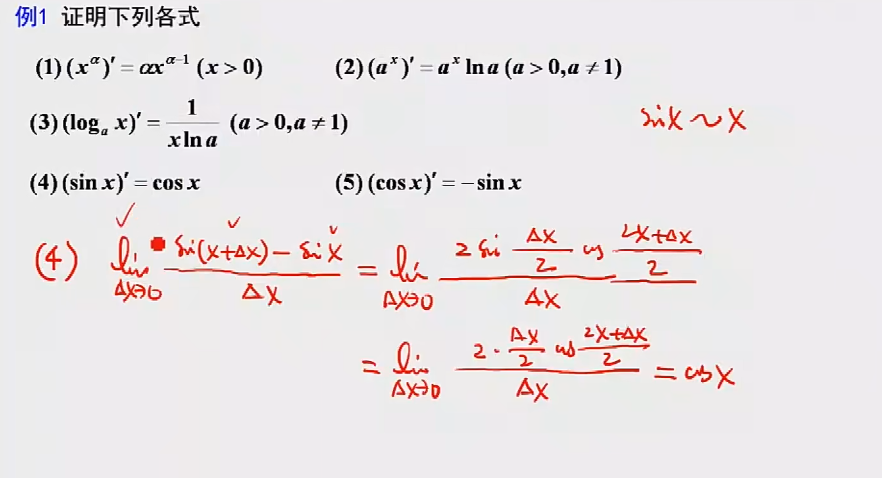 例1 证明下列各式
(1) (x^α)' = αx^(α-1) (x > 0) (2) (a^x)' = a^x ln a (a > 0, a ≠ 1)
(3) (log_a x)' = 1/(x ln a) (a > 0, a ≠ 1)
six ~ x
(4) (sin x)' = cos x (5) (cos x)' = − sin x
(4) lim Δx→0 (sin(x+Δx) − sin x)/Δx = lim Δx→0 (2 sin Δx/2 cos (2x+Δx)/2)/Δx
= lim Δx→0 (2 · Δx/2 cos (2x+Δx)/2)/Δx = cos x